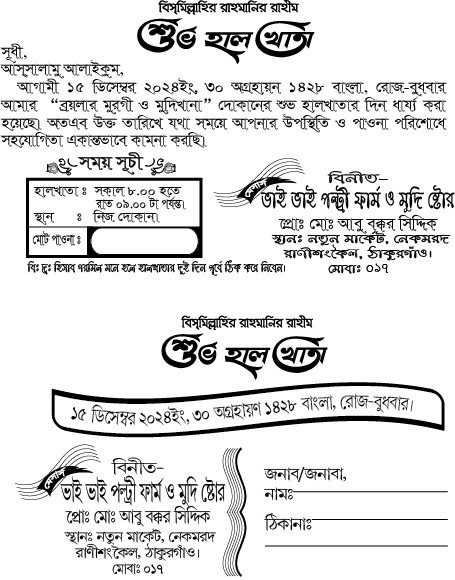 বিস্‌মিল্লাহির রাহমানির রাহীম
শুভ হাল খাতা
সূধী,
আস্‌সালামু আলাইকুম,
আগামী ১৫ ডিসেম্বর ২০২৪ইং, ৩০ অগ্রহায়ন ১৪২৮ বাংলা, রোজ-বুধবার
আমার “ব্রয়লার মুরগী ও মুদিখানা” দোকানের শুভ হালখাতার দিন ধার্য্য করা
হয়েছে। অতএব উক্ত তারিখে যথা সময়ে আপনার উপস্থিতি ও পাওনা পরিশোধে
সহযোগিতা একান্তভাবে কামনা করছি।
সময় সূচী
হালখাতা ঃ সকাল ৮.০০ হতে
রাত ০৯.০০ টা পর্যন্ত।
স্থান ঃ নিজ দোকানা
মোট পাওনা ঃ
বিঃ দ্রঃ হিসাব গরমিল মনে হলে হালখাতার দুই দিন পূর্বে ঠিক করে নিবেন।
বিনীত-
মেসার্স
ভাই ভাই পল্ট্রী ফার্ম ও মুদি ষ্টোর
প্রোঃ মোঃ আবু বক্কর সিদ্দিক
স্থানঃ নতুন মার্কেট, নেকমরদ
রাণীশংকৈল, ঠাকুরগাঁও।
মোবাঃ ০১৭
বিস্‌মিল্লাহির রাহমানির রাহীম
শুভ হাল খাতা
১৫ ডিসেম্বর ২০২৪ইং, ৩০ অগ্রহায়ণ ১৪২৮ বাংলা, রোজ-বুধবার।
বিনীত-
মেসার্স
ভাই ভাই পল্ট্রী ফার্ম ও মুদি ষ্টোর
প্রোঃ মোঃ আবু বক্কর সিদ্দিক
স্থানঃ নতুন মার্কেট, নেকমরদ
রাণীশংকৈল, ঠাকুরগাঁও।
মোবাঃ ০১৭
জনাব/জনাবা,
নামঃ
ঠিকানাঃ